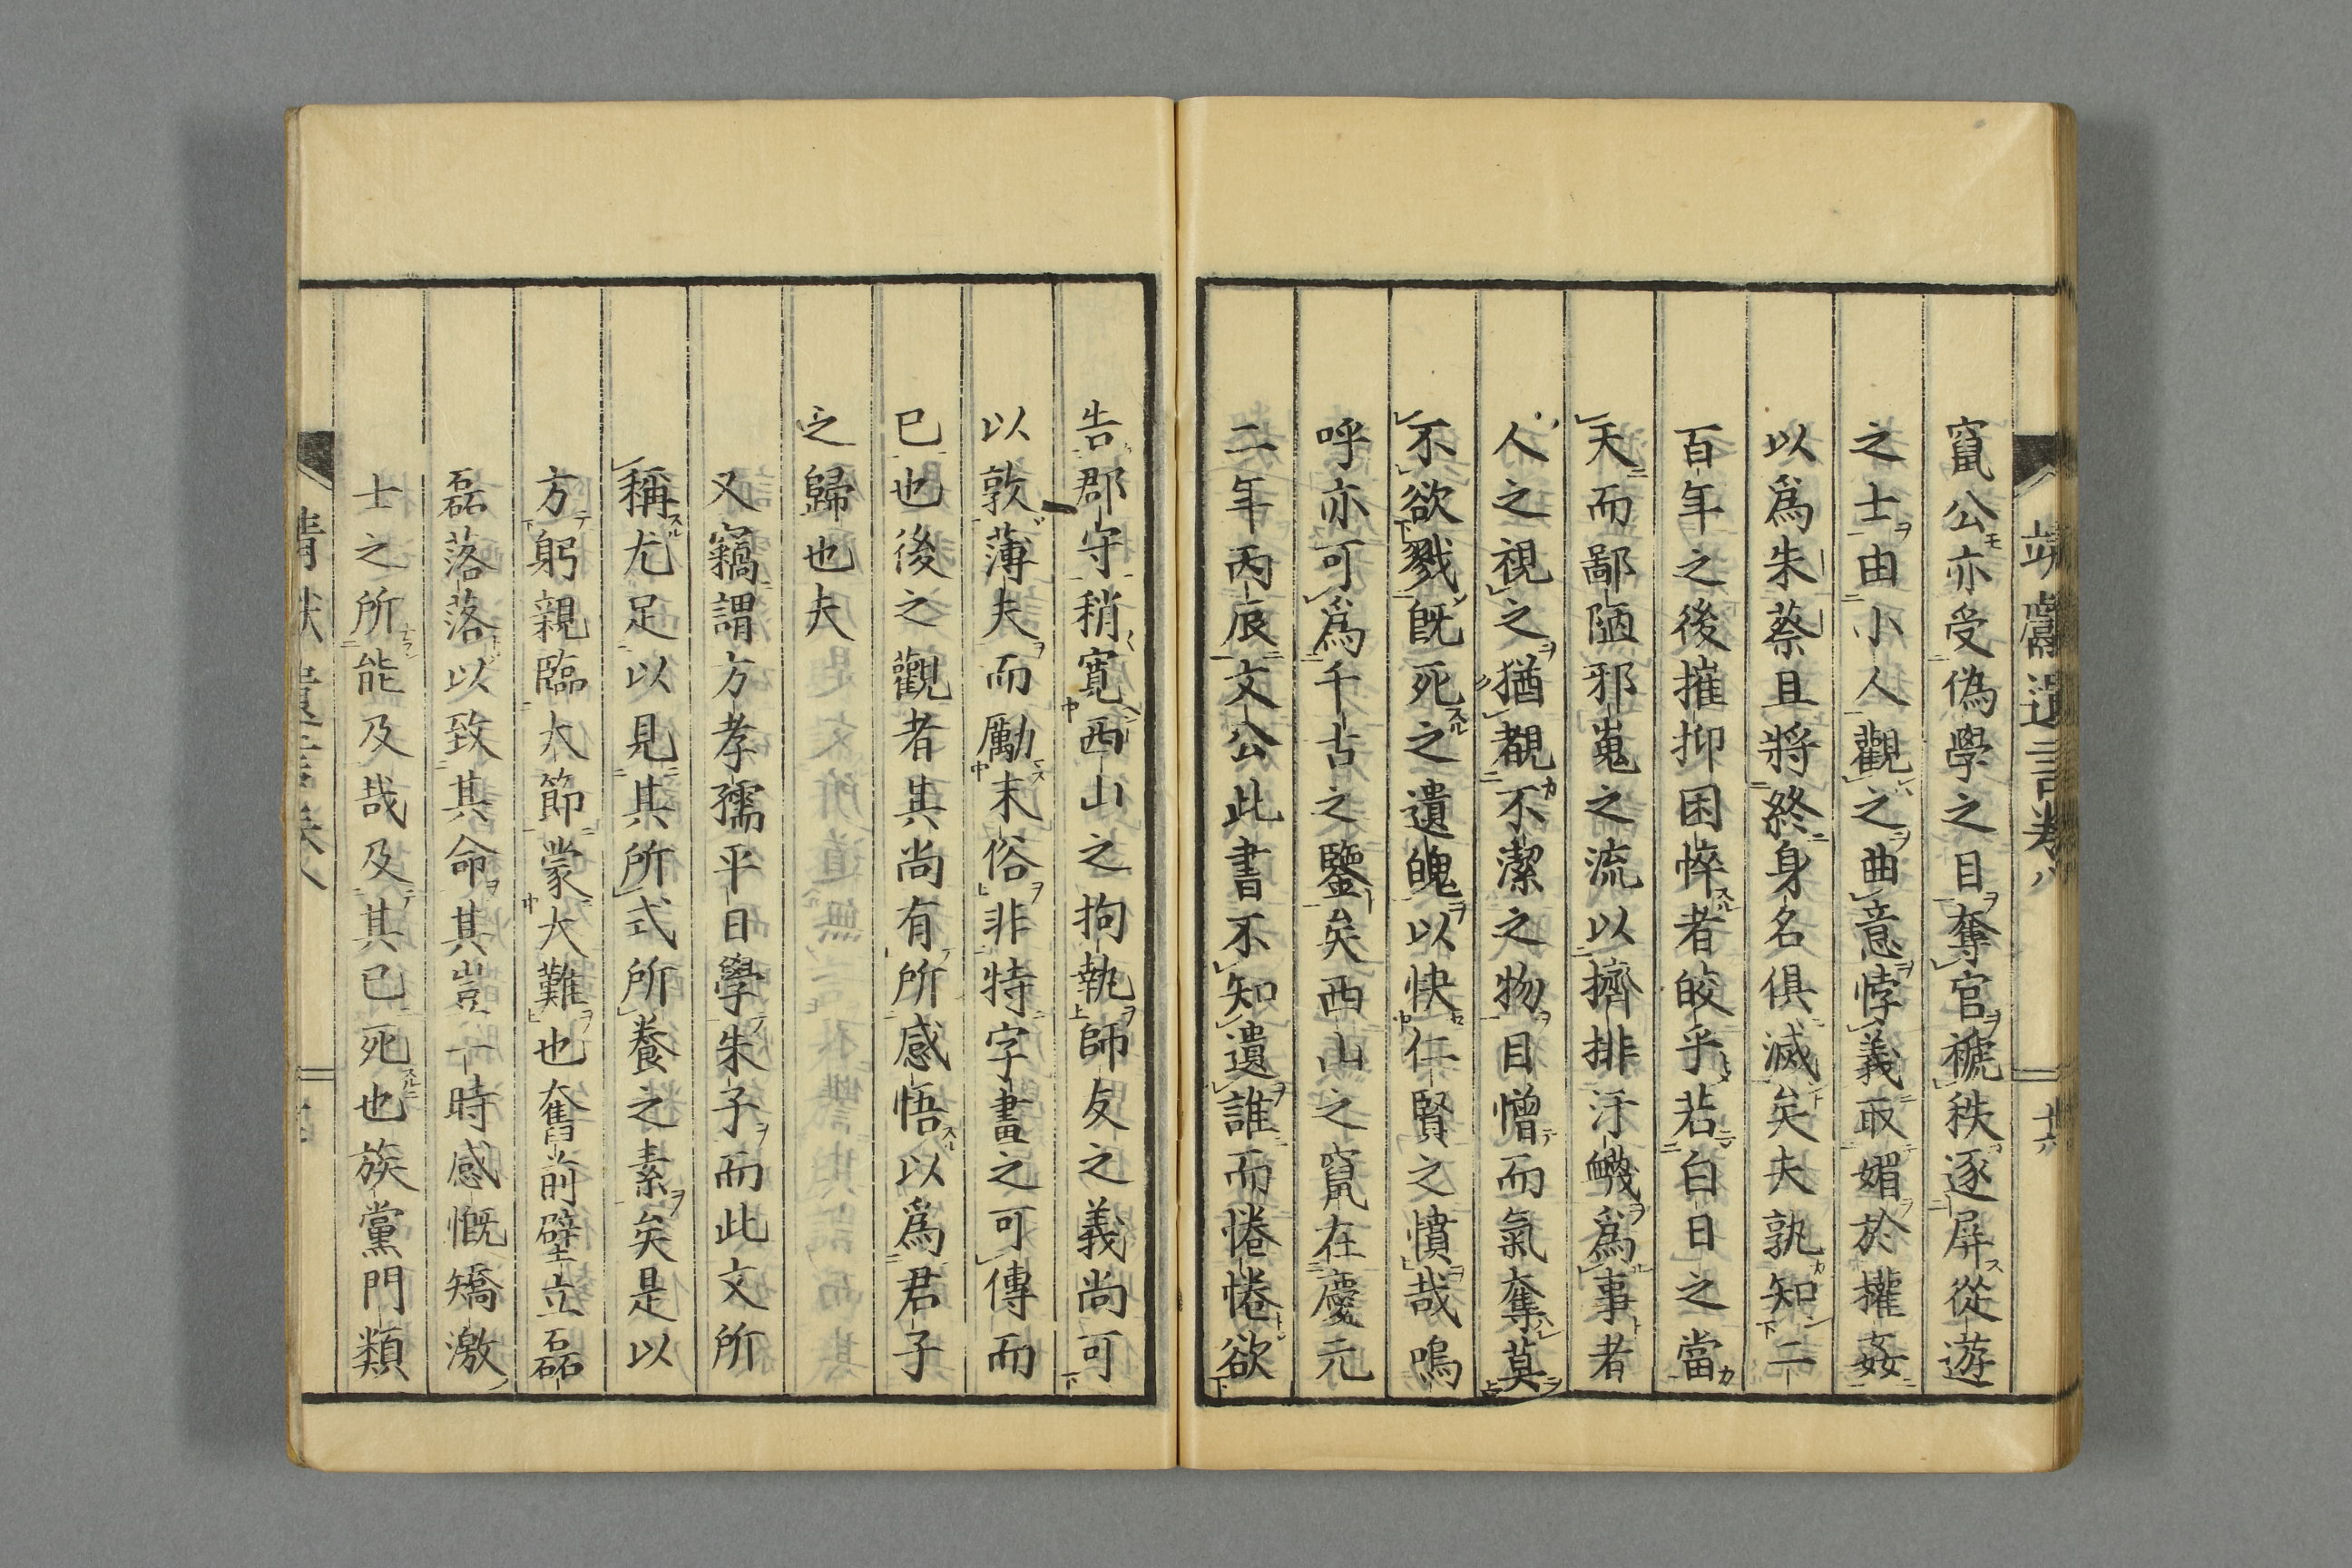 靖獻遺言卷八
十六
竄公亦受偽學之目奪官褫秩逐屏從遊
之士由小人觀之曲意悖義取媚於權姦
以爲朱蔡且將終身名俱滅矣夫孰知二
百年之後摧抑困悴者皎乎若白日之當
天而鄙陋邪嵬之流以擠排汙衊爲事者
人之視之猶覩不潔之物目憎而氣奪莫
不欲戮既死之遺魄以快仁賢之憤哉嗚
呼亦可爲千古之鑒矣西山之竄在慶元
二年丙辰文公此書不知遺誰而惓惓欲
告郡守稍寬西山之拘執師友之義尚可
以敦薄夫而勵末俗非特字畫之可傳而
已也後之觀者其尚有所感悟以爲君子
之歸也夫
又竊謂方孝孺平日學朱子而此文所
稱尤足以見其所式所養之素矣是以
方躬親臨大節蒙大難也奮前壁立磊
磊落落以致其命其豈一時感慨矯激
士之所能及哉及其已死也族黨門類